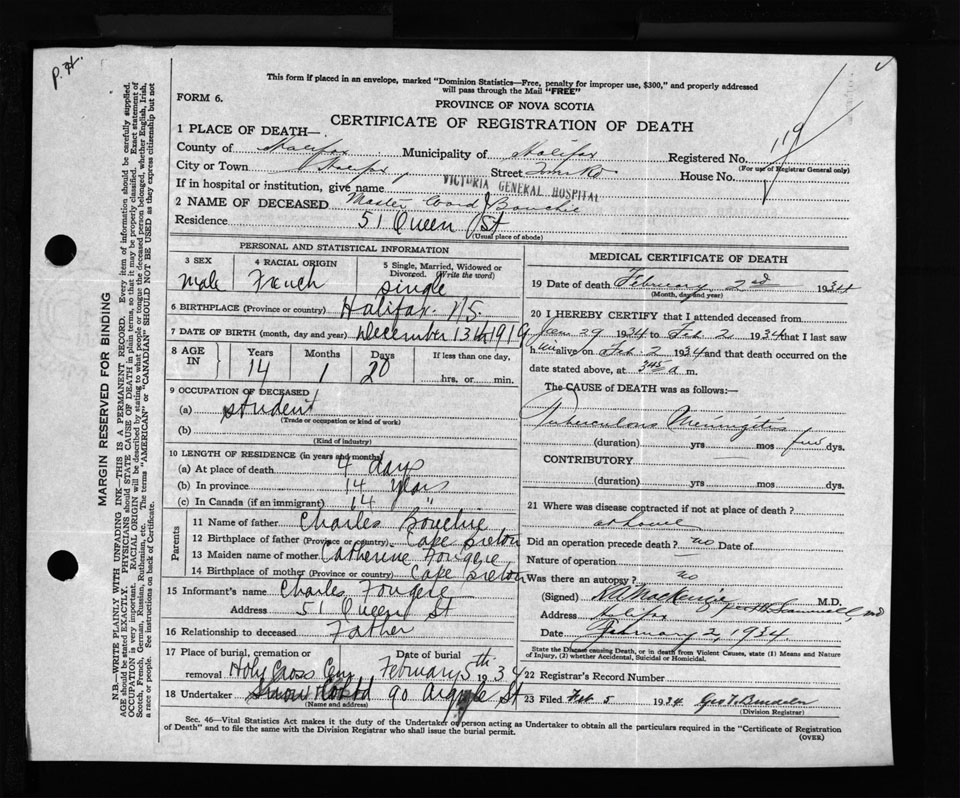 P. H.
This form if placed in an envelope, marked "Dominion Statistics—Free, penalty for improper use, $300," and properly addressed
will pass through the Mail "FREE"
FORM 6.
PROVINCE OF NOVA SCOTIA
CERTIFICATE OF REGISTRATION OF DEATH
1 PLACE OF DEATH—
County of Halifax Municipality of Halifax Registered No. 119
(For use of Registrar General only)
City or Town Halifax Street House No.
If in hospital or institution, give name VICTORIA GENERAL HOSPITAL
2 NAME OF DECEASED Master Bouchie
Residence 51 Queen St
(Usual place of abode)
PERSONAL AND STATISTICAL INFORMATION
3 SEX 4 RACIAL ORIGIN 5 Single, Married, Widowed or Divorced. (Write the word)
Male French Single
6 BIRTHPLACE (Province or country) Halifax N.S.
7 DATE OF BIRTH (month, day and year) December 13th 1919
8 AGE IN Years Months Days If less than one day.
14 1 20 hrs. or min.
9 OCCUPATION OF DECEASED
(a) Student
(Trade or occupation or kind of work)
(b)
(Kind of industry)
10 LENGTH OF RESIDENCE (in years and months)
(a) At place of death 4 days
(b) In province 14 years
(c) In Canada (if an immigrant) 14 "
Parents
11 Name of father Charles Bouchie
12 Birthplace of father (Province or country) Cape Breton
13 Maiden name of mother Catherine Fougere
14 Birthplace of mother (Province or country) Cape Breton
15 Informant's name Charles Fougere
Address 51 Queen St
16 Relationship to deceased Father
17 Place of burial, cremation or removal Holy Cross Cem Date of burial February 5th 1934
18 Undertaker 90 Argyle St
(Name and address)
MEDICAL CERTIFICATE OF DEATH
19 Date of death February 2nd 1934
(Month, day and year)
20 I HEREBY CERTIFY that I attended deceased from
Jan 29 1934 to Feb 2 1934 that I last saw
him alive on Feb. 2 1934 and that death occurred on the
date stated above, at 345 a m.
The CAUSE of DEATH was as follows:
Tuberculous Meningitis
(duration) yrs mos few dys.
CONTRIBUTORY
(duration) yrs mos dys.
21 Where was disease contracted if not at place of death?
at home
Did an operation precede death? no Date of
Nature of operation —
Was there an autopsy? no
(Signed) MacKenzie M.D.
Address Halifax
Date February 2, 1934
State the Disease causing Death, or in death from Violent Causes, state (1) Means and Nature of Injury, (2) whether Accidental, Suicidal or Homicidal.
22 Registrar's Record Number
23 Filed Feb 5 1934
(Division Registrar)
Sec. 46—Vital Statistics Act makes it the duty of the Undertaker or person acting as Undertaker to obtain all the particulars required in the "Certificate of Registration
of Death" and to file the same with the Division Registrar who shall issue the burial permit.
(OVER)
MARGIN RESERVED FOR BINDING
N.B.—WRITE PLAINLY WITH UNFADING INK—THIS IS A PERMANENT RECORD. Every item of information should be carefully supplied.
AGE should be stated EXACTLY. PHYSICIANS should STATE CAUSE OF DEATH in plain terms, so that it may be properly classified. Exact statement of
OCCUPATION is very important. RACIAL ORIGIN will be described by stating to what people or tongue the deceased person belonged, whether English, Irish,
Scotch, French, German, Russian, Ruthenian, etc. The terms "AMERICAN" or "CANADIAN" SHOULD NOT BE USED as they express citizenship but not
a race or people. See instructions on back of Certificate.